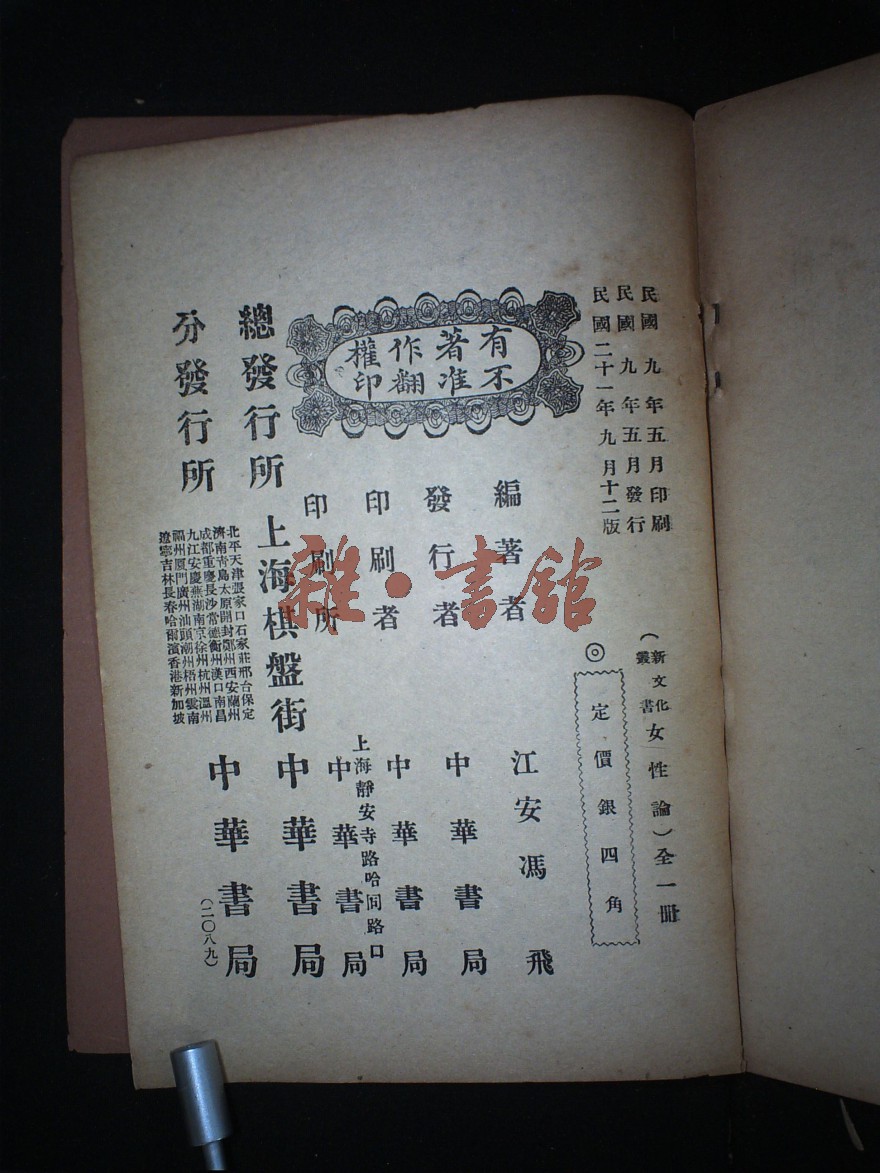 民國九年五月印刷
民國九年五月發行
民國二十一年九月十二版
(新文化叢書女性論)全一冊
◎定價銀四角
有著作權
不准翻印
編著者 江安馮飛
發行者 中華書局
印刷者 中華書局
上海靜安寺路哈同路口
印刷所 中華書局
總發行所 上海棋盤街 中華書局
分發行所
北平天津張家口石家莊邢台保定
濟南青島太原開封鄭州西安蘭州
成都重慶長沙常德衡州漢口南昌
九江安慶蕪湖南京徐州杭州溫州
福州厦門廣州汕頭潮州梧州雲南
遼寧吉林長春哈爾濱香港新加坡
中華書局
(二〇八九)
雜·書館